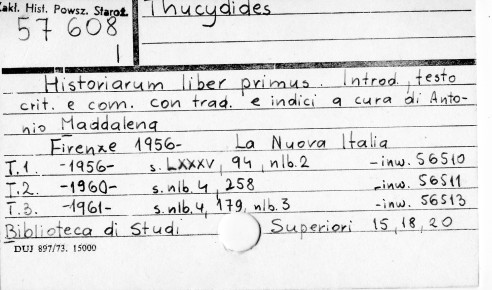 Zakł. Hist. Powsz. Staroż.
57608
I
Thucydides
Historiarum liber primus. Introd., testo
crit. e com. con trad. e indici a cura di Anto-
nio Maddalena
Firenze 1956- La Nuova Italia
T.1. -1956- s. LXXXV, 94, nlb. 2 -inw. 56510
T.2. -1960- s. nlb. 4, 258 -inw. 56511
T.3. -1961- s. nlb. 4, 179, nlb. 3 -inw. 56513
Biblioteca di Studi Superiori 15, 18, 20
DUJ 897/73. 15000